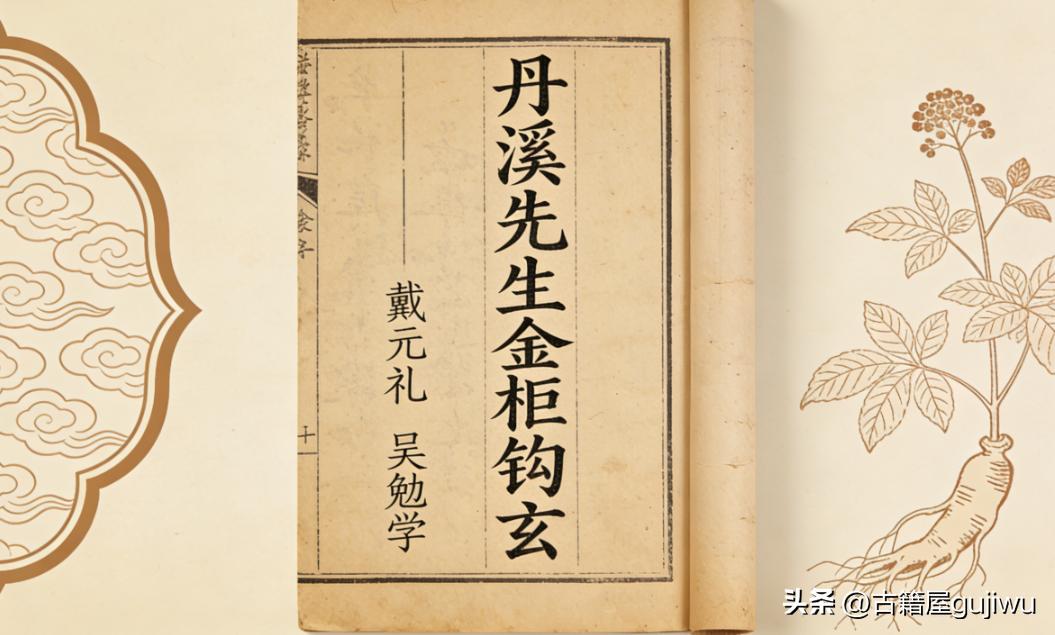 丹溪先生金柜钩玄
戴元礼 吴勉学
头条 @古籍屋gujiwu